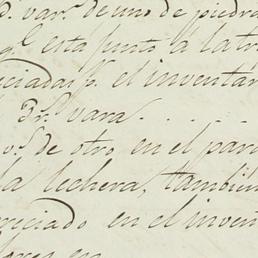 var.s de uno de piedra
q.e esta junto á la tr
ciadas p.r el inventar
3r.s vara . . . . .
v.s de otro en el par
la lechera, también
reciado en el inven